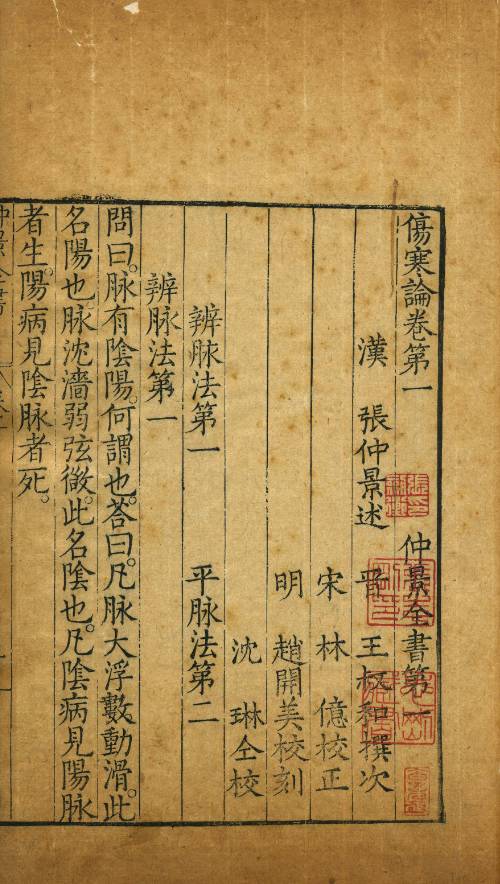 傷寒論卷第一　仲景全書第一
漢　張仲景述　晉　王叔和撰次
宋　林　億校正
明　趙開美校刻
沈　琳仝校
辨脉法第一　平脉法第二
辨脉法第一
問曰。脉有陰陽。何謂也。荅曰。凡脉大浮數動滑。此
名陽也。脉沈濇弱弦微。此名陰也。凡陰病見陽脉
者生。陽病見陰脉者死。